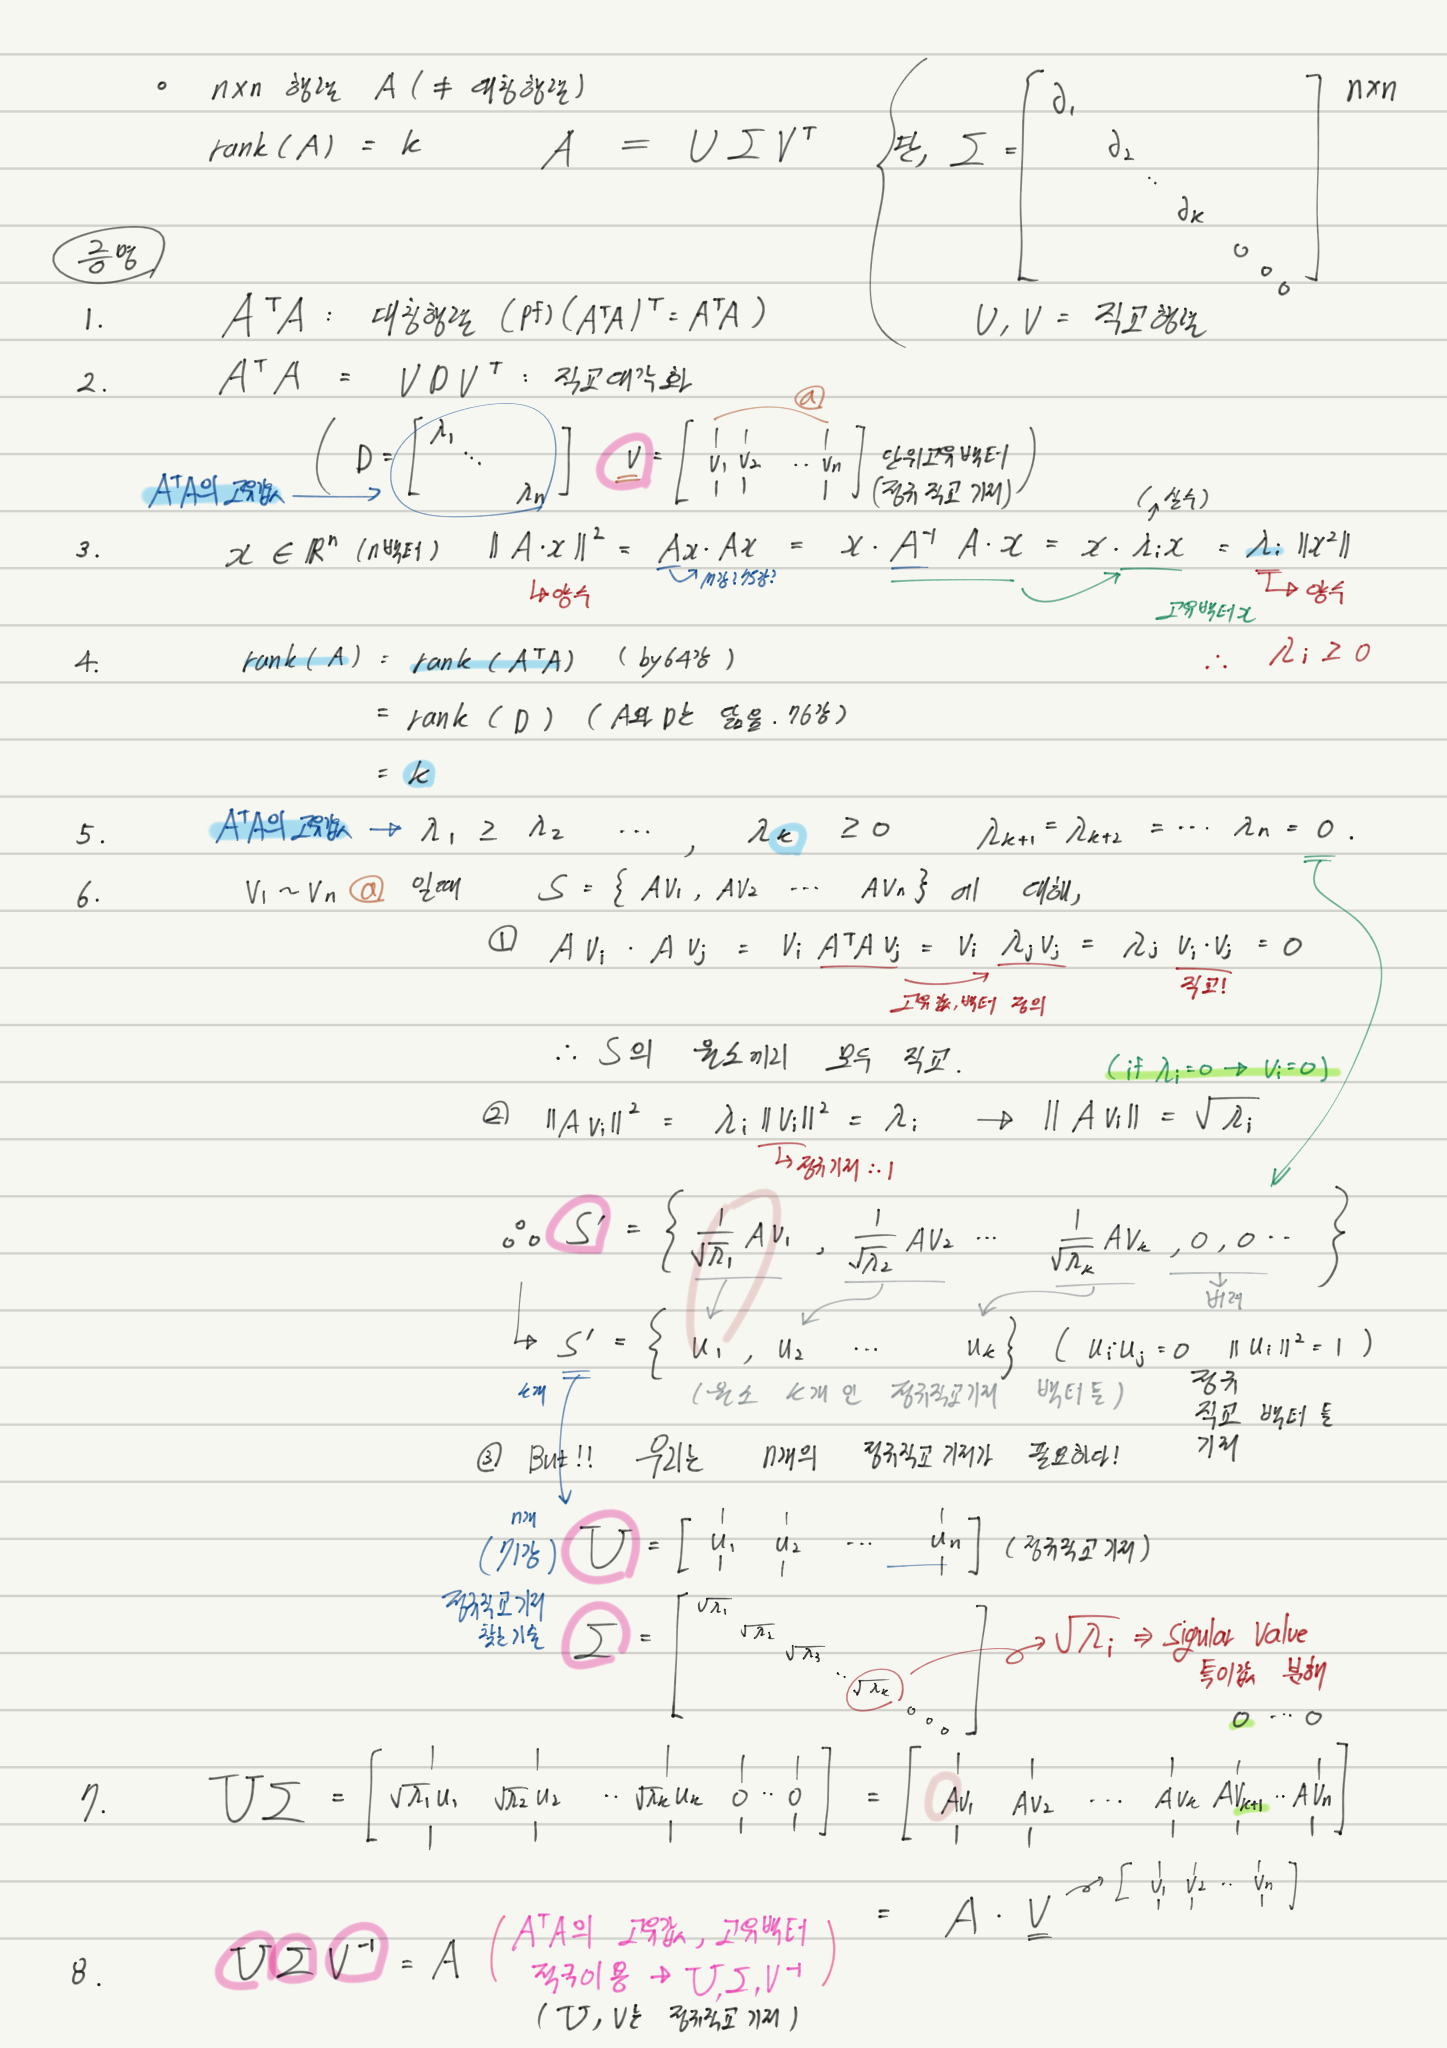 ∘ n×n 행렬 A ( ≠ 대칭행렬)
rank(A) = k A = UΣVᵀ
단, Σ = [ ∂₁ ∂₂ ⋱ ∂k 0 0 0 ] n×n
U, V = 직교행렬
증명
1. AᵀA : 대칭행렬 (pf) (AᵀA)ᵀ = AᵀA )
2. AᵀA = VDVᵀ : 직교대각화
( D = [ λ₁ ⋱ λn ] V = [ v₁ v₂ ·· vn ] ⓐ 단위고유벡터 (정규직교 기저) )
AᵀA의 고유값 →
3. x ∈ ℝⁿ (n벡터) ‖A·x‖² = Ax·Ax = x·A⁻¹ A·x = x·λᵢx = λᵢ ‖x²‖
(↗ 실수)
↳ 양수
고유벡터 x
→ 양수
∴ λᵢ ≥ 0
4. rank(A) = rank(AᵀA) (by 64강)
= rank(D) (A와 D는 닮음. 76강)
= k
5. AᵀA의 고유값 → λ₁ ≥ λ₂ ··· , λk ≥ 0 λk+1 = λk+2 = ··· λn = 0 .
6. v₁ ~ vn ⓐ 일때 S = { Av₁, Av₂ ··· Avn } 에 대해,
① Avᵢ · Avⱼ = vᵢ AᵀA vⱼ = vᵢ λⱼvⱼ = λⱼ vᵢ·vⱼ = 0
고유값, 벡터 정의
직교!
∴ S의 원소끼리 모두 직교.
(if λᵢ=0 → vᵢ=0)
② ‖Avᵢ‖² = λᵢ ‖vᵢ‖² = λᵢ → ‖Avᵢ‖ = √λᵢ
↳ 정규기저 ∴ 1
∴ S' = { 1/√λ₁ Av₁ , 1/√λ₂ Av₂ ··· 1/√λk Avk , 0, 0 ·· }
버려
↳ S' = { u₁ , u₂ ··· uk } ( uᵢ·uⱼ = 0 ‖uᵢ‖² = 1 )
k개
(원소 k개 인 정규직교기저 벡터들)
정규
직교 벡터 들
기저
③ But!! 우리는 n개의 정규직교 기저가 필요하다!
n개
(71강) U = [ u₁ u₂ ··· un ] (정규직교 기저)
정규직교기저
찾는기술
Σ = [ √λ₁ √λ₂ √λ₃ ·· √λk 0 0 0 ] → √λᵢ ⇒ Sigular Value
특이값 분해
0 ··· 0
7. UΣ = [ √λ₁u₁ √λ₂u₂ ·· √λkuk 0 ·· 0 ] = [ Av₁ Av₂ ··· Avk Avk+1 ·· Avn ]
= A · V → [ v₁ v₂ ·· vn ]
8. UΣV⁻¹ = A ( AᵀA의 고유값, 고유벡터
적극이용 → U, Σ, V⁻¹ )
(U, V는 정규직교 기저)